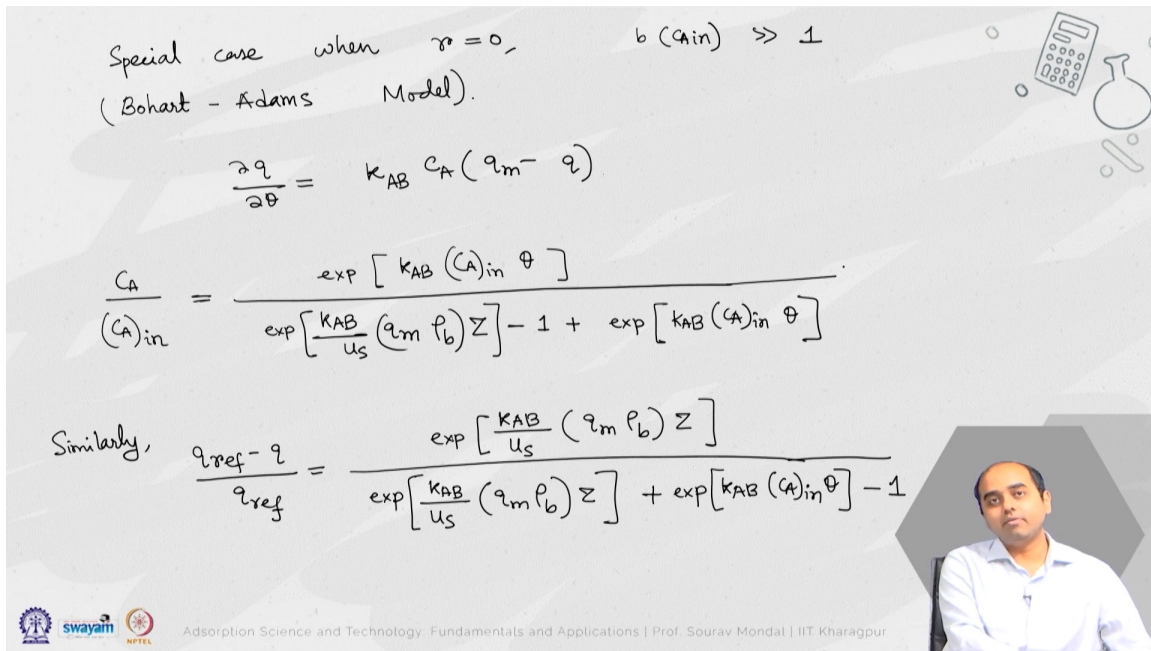 Special case when r = 0, b (CAin) >> 1
(Bohart - Adams Model).
∂q/∂θ = kAB CA (qm - q)
CA/(CA)in = exp [ kAB (CA)in θ ] / exp [ kAB/us (qm ρb) Z ] - 1 + exp [ kAB (CA)in θ ]
Similarly, qref - q / qref = exp [ kAB/us (qm ρb) Z ] / exp [ kAB/us (qm ρb) Z ] + exp [ kAB (CA)in θ ] - 1
swayam NPTEL Adsorption Science and Technology: Fundamentals and Applications | Prof. Sourav Mondal | IIT Kharagpur